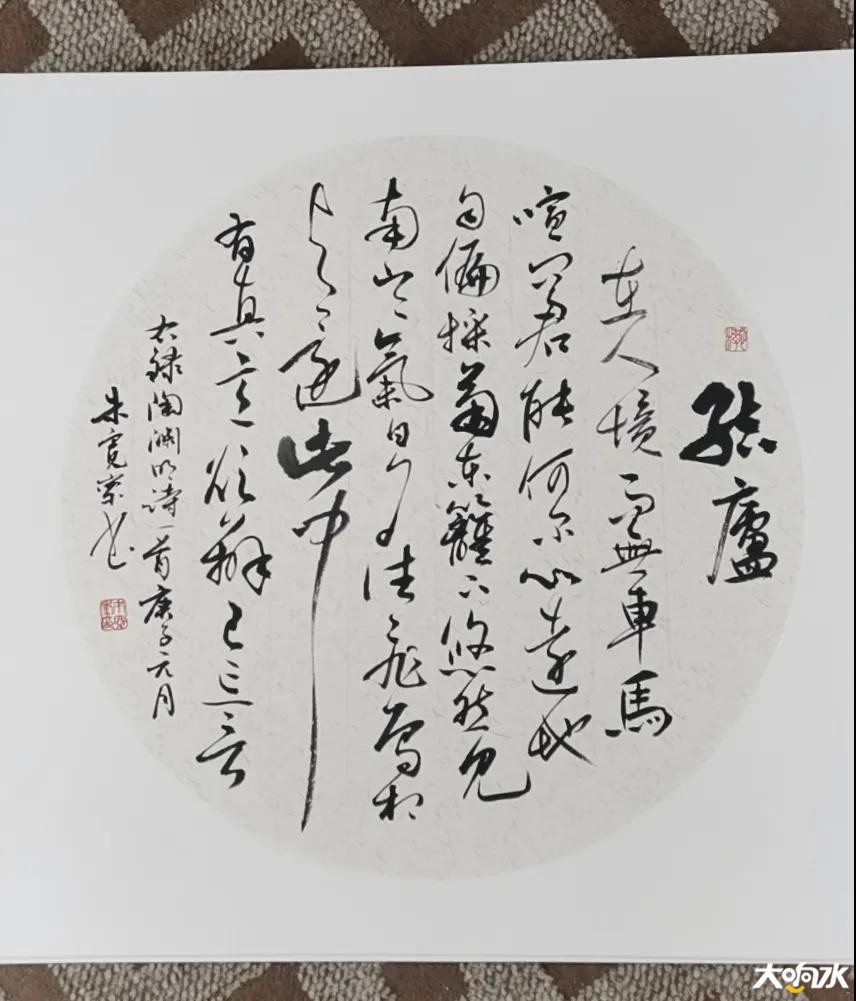 結廬
在人境而無車馬
喧问君能何尔心遠地
自偏採菊東籬下悠然見
南山山氣日夕佳飛鳥相
与還此中
有真意欲辯已忘言
右録陶淵明詩一首庚子元月
朱寬宗书
大响水